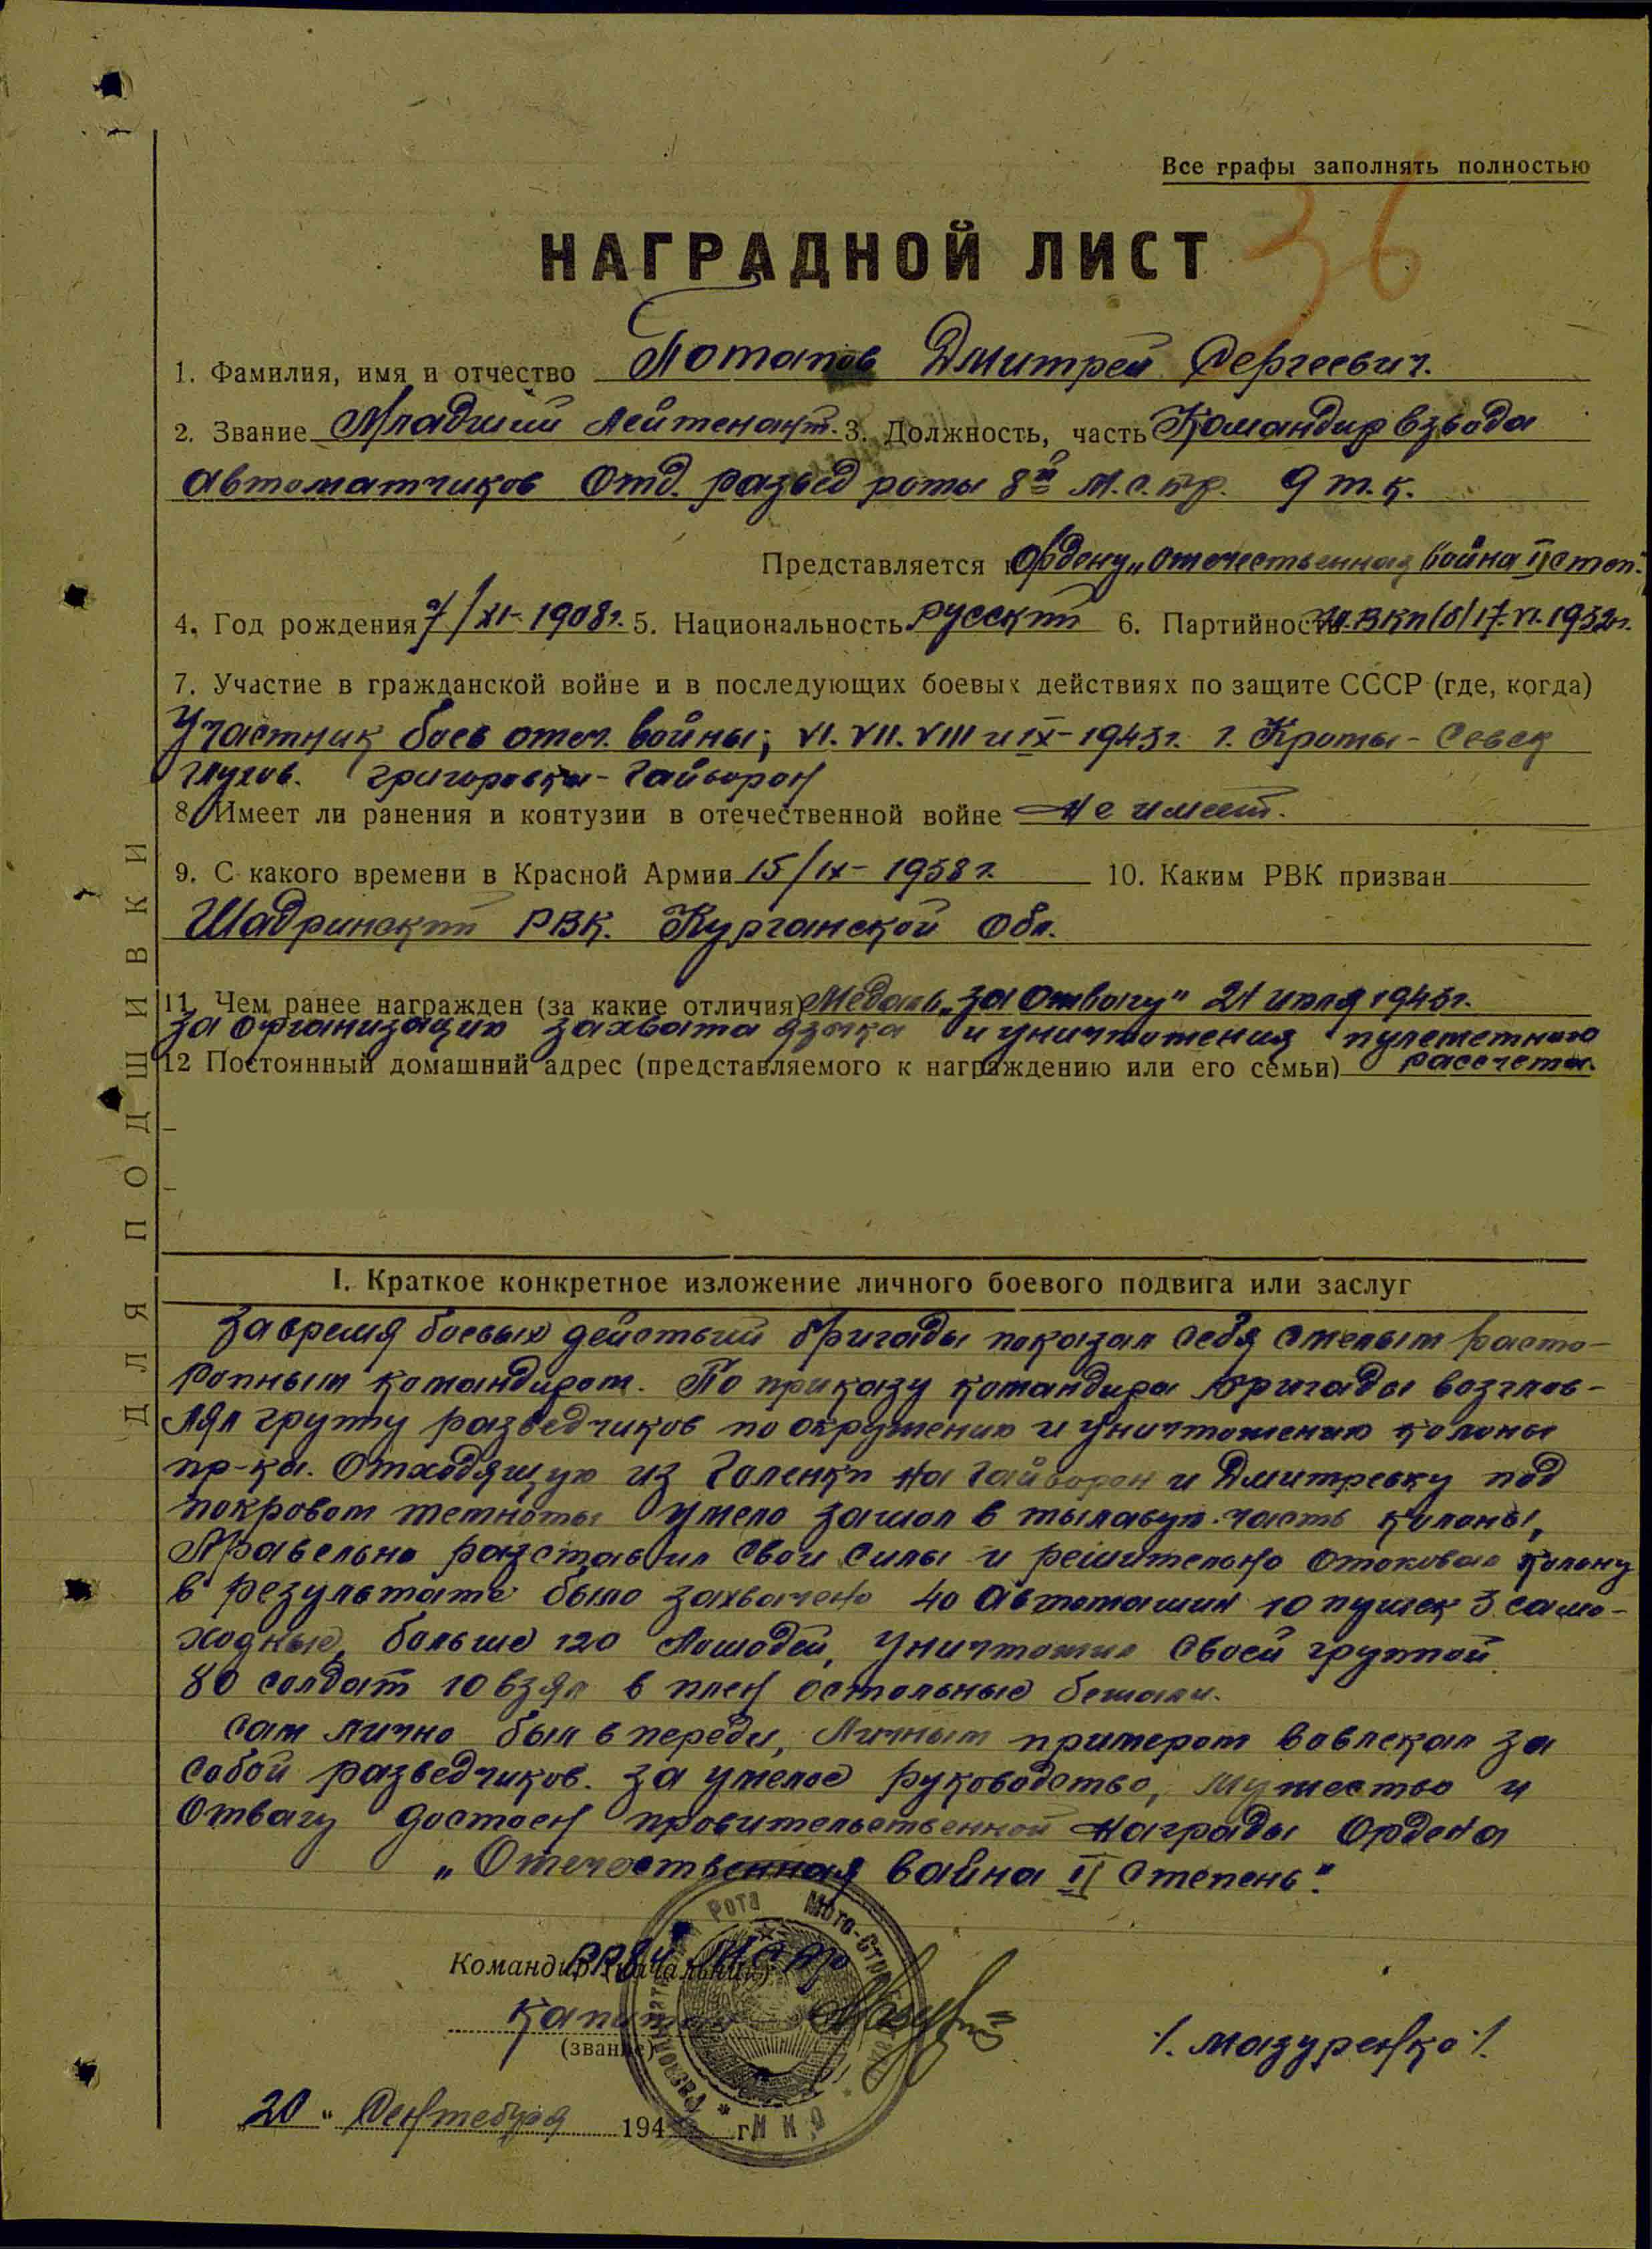 Все графы заполнять полностью
36
НАГРАДНОЙ ЛИСТ
1. Фамилия, имя и отчество Потапов Дмитрей Сергеевич.
2. Звание Младший Лейтенант. 3. Должность, часть Командир взвода
автоматчиков Отд. развед роты 8й м.с.бр. 9 т.к.
Представляется к Ордену „Отечественная война II степ."
4. Год рождения 7/XI-1908г. 5. Национальность русский 6. Партийность ВКП(б) 17.VI.1932г.
7. Участие в гражданской войне и в последующих боевых действиях по защите СССР (где, когда)
Участник боев отеч. войны; VI. VII. VIII и IX-1943г. г. Кромы - Севск
Глухов. Григоровка - Гайворон
8. Имеет ли ранения и контузии в отечественной войне Не имеет.
9. С какого времени в Красной Армии 15/IX- 1938г. 10. Каким РВК призван
Шадринский РВК. Курганской Обл.
11. Чем ранее награжден (за какие отличия) Медаль „За Отвагу" 21 июля 1943г.
за организацию захвата языка и уничтожения пулеметного
12 Постоянный домашний адрес (представляемого к награждению или его семьи) рассчета.
ДЛЯ ПОДШИВКИ
I. Краткое конкретное изложение личного боевого подвига или заслуг
За время боевых действий бригады показал себя смелым расто-
ропным командиром. По приказу командира бригады возглав-
лял группу разведчиков по окружению и уничтожению колоны
пр-ка. Отходящую из Галенки на Гайворон и Дмитревку под
покровом темноты умело зашол в тылавую часть колоны,
Правельно разставил свои силы и решительно отоковал колону
в результате было захвачено 40 автомашин 10 пушек 3 само-
ходные, больше 120 Лошадей, Уничтожил своей группой
80 солдат 10 взял в плен остольные бежали.
Сам лично был впереди, Личным примером вовлекал за
собой разведчиков. За умелое руководство, мужество и
Отвагу достоен провительственной Награды Ордена
„Отечественная вайна II степень".
Командир (начальник)
капитан
(звание)
/. Мазуренко ./.
„20" Сентебря 194 г.
Рота Мото-Стр
Разв
Н К О